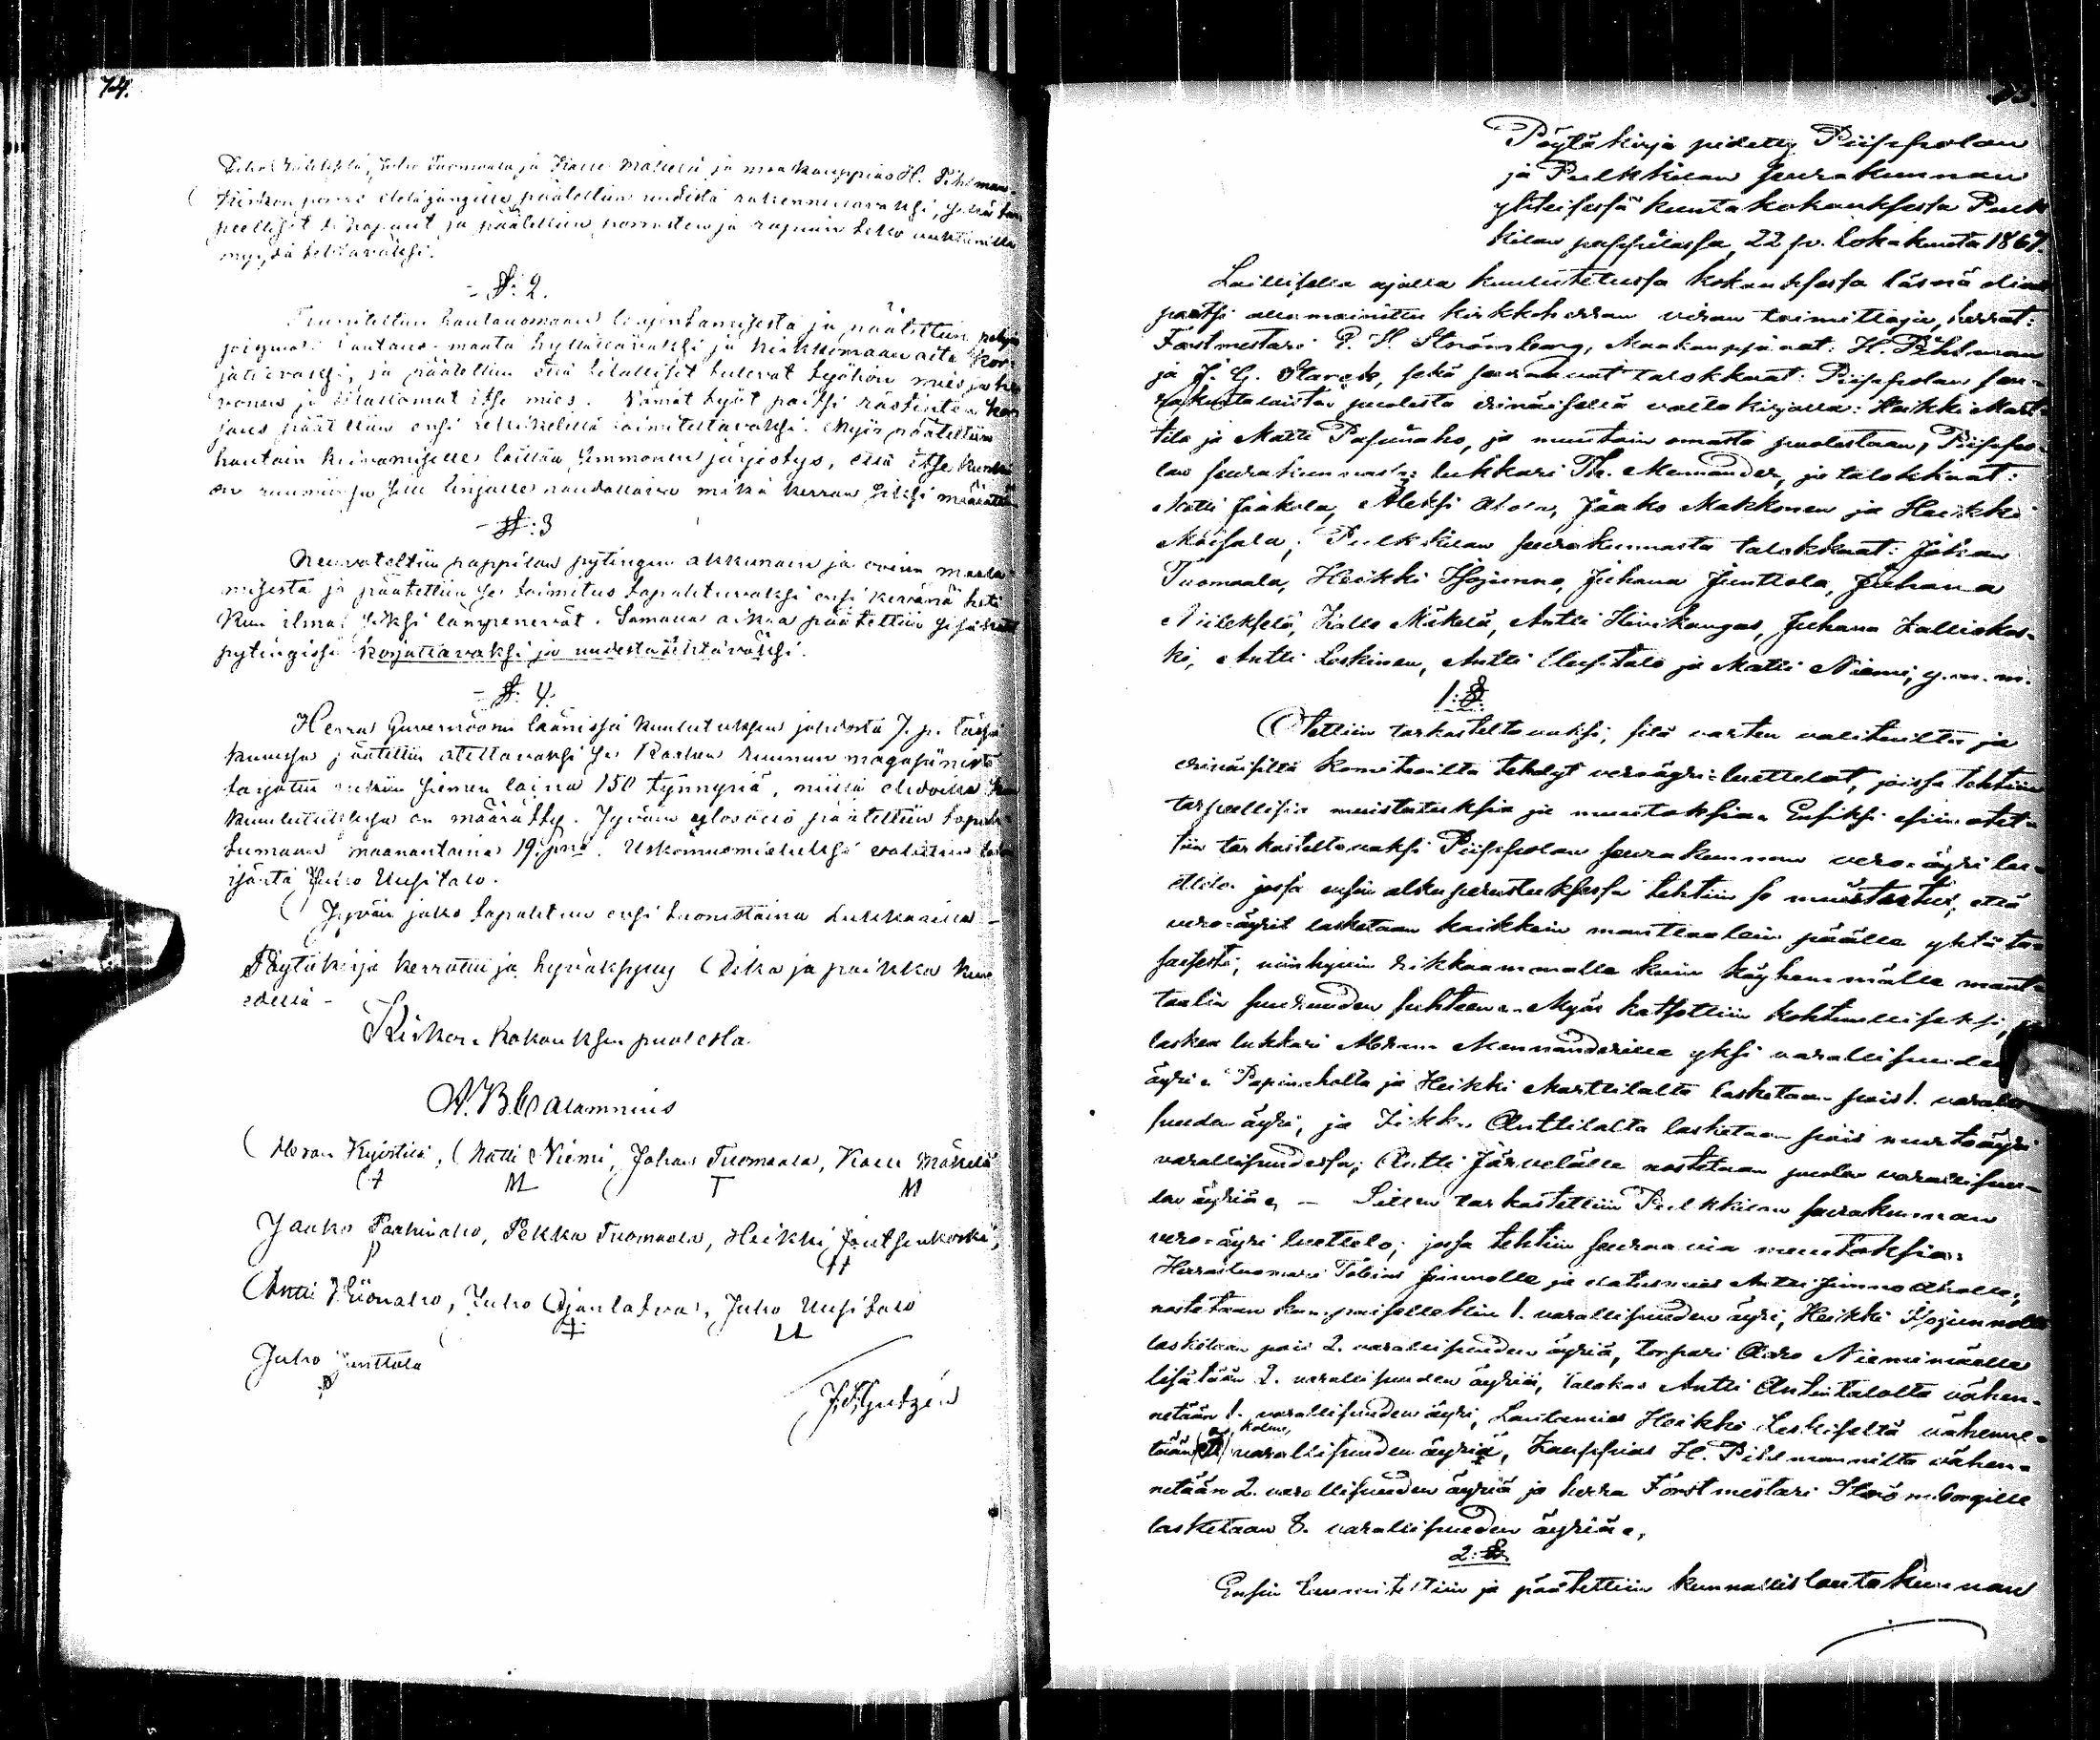 74.
Juho Tuomaala ja Kalle Mäkelä ja maakauppias H. Pihlman.
Kirkon porras eteläpuolelle päätettiin uudesta rakennettavaksi,
ja päätettiin, porrasten ja rapuin teko
myydä tehtäväksi.
§: 2.
Tuumiteltiin hautausmaan laajentamisesta ja päätettiin
hautausmaata ja kirkkomaan aita kor-
jattavaksi, ja päätettiin että tilalliset tulevat työhön mies ja he-
vonen ja tilattomat itse mies. Nämät työt paitsi
päätettiin ensi toimitettavaksi. Myös päätettiin
hautain kaivamiselle laittaa semmonen järjestys, että itse kunkin
on ruumiinsa sille linjalle haudattava mikä kerran siksi määrätään
§: 3
Neuvoteltiin pappilan pytingin akkunain ja ovien maala-
misesta ja päätettiin se toimitus tapahtuvaksi ensi keväänä heti
kun ilmat siksi lämpenevät. Samana aikana päätettiin
pytingissä korjattavaksi ja uudesta tehtäväksi.
§: 4.
Herra Guvernöörin läänissä kuulutuksen johdosta 7. p. tässä
kuussa päätettiin otettavaksi se Raahen kruunun magasiinista
tarjottu siemen laina 150 tynnyriä, niillä ehdoilla kun
kuulutuksessa on määrätty. Jyväin ulosotto päätettiin tapah-
tumaan maanantaina 19. p:nä. Uskomusmieheksi valittiin
isäntä Juho Uusitalo.
Jyväin jako tapahtuu ensi tuorestaina Lukkarilla -
Pöytäkirja kerrottu ja hyväksytty Aika ja paikka kun
edellä -
Kirkon Kokouksen puolesta
A. B. Calamnius
Abram Kyöstilä, Matti Niemi, Johan Tuomaala, Kalle Mäkelä
M T M
Jaako Paahinaho, Pekka Tuomaala, Heikki Joutsenkoski,
P
Antti Hiironaho, Juho Ojanlatva, Juho Uusitalo
U
Juho Junttola
Pöytäkirja pidetty Piippolan
ja Pulkkilan seurakunnan
yhteisessä kuntakokouksessa Pulk-
kilan pappilassa 22 p. lokakuuta 1867.
Laillisella ajalla kuulutetussa kokouksessa läsnä olivat
paitsi allamainittu kirkkoherran viran toimittaja, herrat:
Forstmestari P. H. Strömborg, Maakauppiaat: H. Pihlman
ja J. G. Starck, sekä seuraavat talokkaat: Piippolan seu-
rakuntalaisten puolesta erinäisellä valtakirjalla: Heikki Mart-
tila ja Matti Papinaho, ja muutoin omasta puolestaan, Piippo-
lan seurakunnasta: lukkari Th. Mennander, ja talokkaat:
Matti Jaakola, Aleksi Alola, Jaako Makkonen ja Heikki
Maijala; Pulkkilan seurakunnasta talokkaat: Johan
Tuomaala, Heikki Isojunno, Juhana Junttola, Juhana
Niileksetä, Kalle Mäkelä, Antti Hirvikangas, Juhana Kalliokos-
ki, Antti Leskinen, Antti Uusitalo ja Matti Niemi, y. m. m.
1: §.
Otettiin tarkasteltavaksi, sitä varten valituilta ja
erinäisiltä komiteoilta tehdyt veroäyri-luettelot, joissa tehtiin
tarpeellisia muistutuksia ja muutoksia. Ensiksi esiin otet-
tiin tarkasteltavaksi Piippolan seurakunnan vero-äyri lu-
ettelo jossa ensin alkuperustuksessa tehtiin se muistutus, että
vero-äyrit lasketaan kaikkein manttaalein päälle yhtä ta-
saisesti, niinhyvin rikkaammalle kuin köyhemmälle mant-
taalin suuruuden suhteen. Myös katsottiin kohtuulliseksi,
laskea lukkari Abram Mennanderille yksi varallisuuden
äyri. Papinaholta ja Heikki Marttilalta lasketaan pois 1. varalli-
suuden äyri, ja Antilalta lasketaan pois murtoäyri
varallisuudessa; Antti Järvelälle nostetaan puolen varallisuu-
den äyriä, - Sitten tarkastettiin Pulkkilan seurakunnan
vero-äyri luettelo; jossa tehtiin seuraavia muutoksia:
Herrastuomari Tobias Junnolle ja Antti Junnoaholle,
nostetaan kumpaisellekin 1. varallisuuden äyri, Heikki Isojunnolta
lasketaan pois 2. varallisuuden äyriä, torpari Niemimäelle
lisätään 2. varallisuuden äyriä, talokas Antti Anttitalolta vähen-
netään 1. varallisuuden äyri, Lautamies Heikki Leskiseltä vähenne-
kolme,
tään varallisuuden äyriä, Kauppias H. Pihlmannilta vähen-
netään 2. varallisuuden äyriä ja herra Forstmestari Strömborgille
lasketaan 8. varallisuuden äyriä.
2: §.
Ensin tuumiteltiin ja päätettiin kunnallislautakunnan